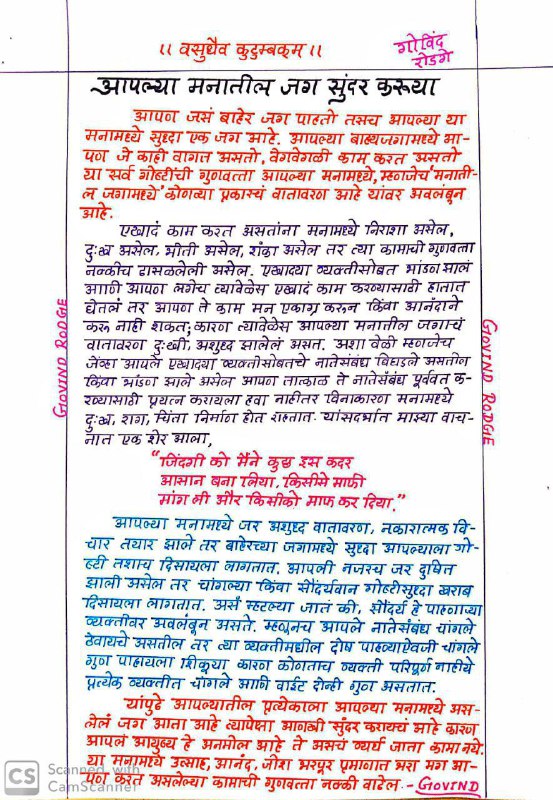 ।। वसुधैव कुटुम्बकम् ।।
गोविंद
रोडगे
आपल्या मनातील जग सुंदर करूया
आपण जसं बाहेर जग पाहतो तसच आपल्या या
मनामध्ये सुध्दा एक जग आहे. आपल्या बाह्यजगामध्ये आ-
पण जे काही वागत असतो, वेगवेगळी काम करत असतो
या सर्व गोष्टींची गुणवत्ता आपल्या मनामध्ये, म्हणजेच 'मनाती-
ल जगामध्ये' कोणत्या प्रकारचं वातावरण आहे यांवर अवलंबून
आहे.
एखादं काम करत असतांना मनामध्ये निराशा असेल,
दुःख असेल, भीती असेल, शंका असेल तर त्या कामाची गुणवत्ता
नक्कीच ढासळलेली असेल. एखाद्या व्यक्तीसोबत भांडण झालं
आणि आपण लगेच त्यावेळेस एखादं काम करण्यासाठी हातात
घेतलं तर आपण ते काम मन एकाग्र करून किंवा आनंदाने
करू नाही शकत; कारण त्यावेळेस आपल्या मनातील जगाचं
वातावरण दुःखी, अशुध्द झालेलं असत. अशा वेळी म्हणजेच
जेंव्हा आपले एखाद्या व्यक्तीसोबतचे नातेसंबंध बिघडले असतील
किंवा भांडण झाले असेल आपण तात्काळ ते नातेसंबंध पूर्ववत क-
रण्यासाठी प्रयत्न करायला हवा नाहीतर विनाकारण मनामध्ये
दुःख, राग, चिंता निर्माण होत राहतात. यांसदर्भात माझ्या वाच-
नात एक शेर आला,
"जिंदगी को मैंने कुछ इस कदर
आसान बना लिया, किसीसे माफी
मांग ली और किसीको माफ कर दिया."
आपल्या मनामध्ये जर अशुध्द वातावरण, नकारात्मक वि-
चार तयार झाले तर बाहेरच्या जगामध्ये सुध्दा आपल्याला गो-
ष्टी तशाच दिसायला लागतात. आपली नजरच जर दुषित
झाली असेल तर चांगल्या किंवा सौंदर्यवान गोष्टीसुध्दा खराब
दिसायला लागतात. असं म्हटल्या जातं की, सौंदर्य हे पाहणाऱ्या
व्यक्तीवर अवलंबून असते. म्हणूनच आपले नातेसंबंध चांगले
ठेवायचे असतील तर त्या व्यक्तीमधील दोष पाहण्याऐवजी चांगले
गुण पाहायला शिकूया कारण कोणताच व्यक्ती परिपूर्ण नाहीये
प्रत्येक व्यक्तीत चांगले आणि वाईट दोन्ही गुण असतात.
यांपुढे आपल्यातील प्रत्येकाला आपल्या मनामध्ये अस-
लेलं जग आता आहे त्यापेक्षा आणखी सुंदर करायचं आहे कारण
आपलं आयुष्य हे अनमोल आहे ते असचं व्यर्थ जाता कामा नये.
या मनामध्ये उत्साह, आनंद, जोश भरपूर प्रमाणात भरा मग आ-
पण करत असलेल्या कामाची गुणवत्ता नक्की वाढेल. - GOVIND
GOVIND RODGE
GOVIND RODGE
CS Scanned with
CamScanner